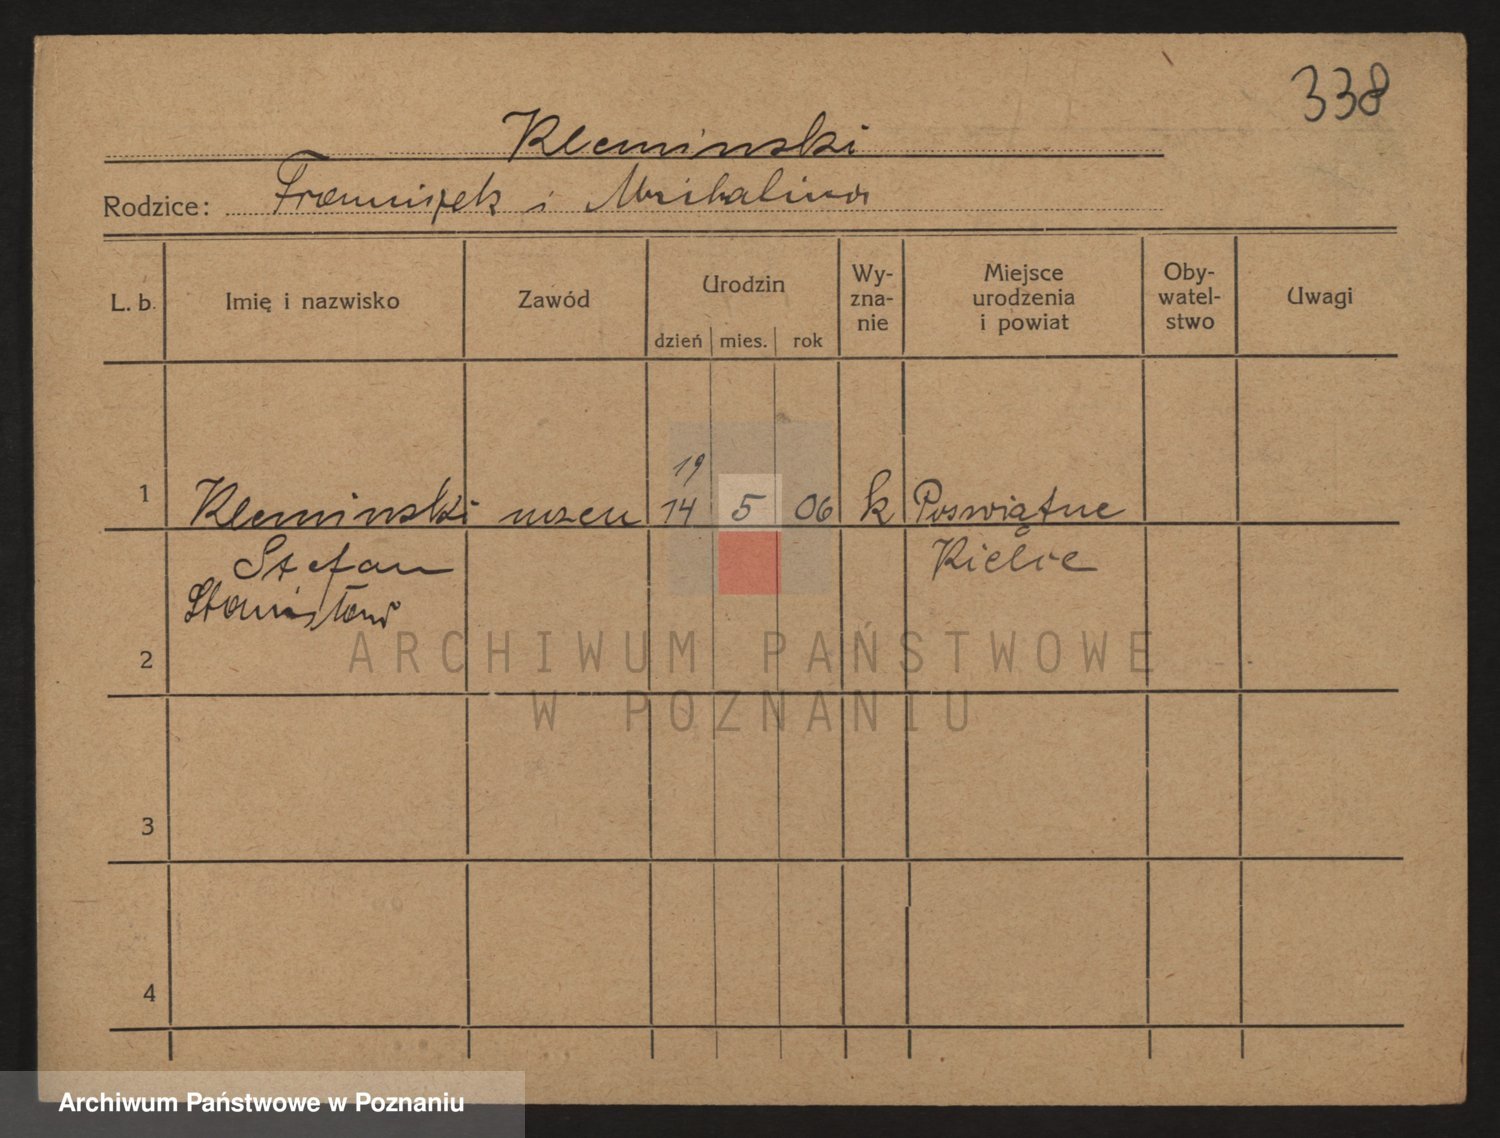 338
Kleminski
Rodzice: Franciszek i Michalina
L. b. Imię i nazwisko Zawód Urodzin Wy- Miejsce Oby- Uwagi
zna- urodzenia watel-
nie i powiat stwo
dzień mies. rok
19
1 Kleminski uczeń 14 5 06 k Poswiątne
Stefan Kielce
Stanisław
2
ARCHIWUM PAŃSTWOWE
W POZNANIU
3
4
Archiwum Państwowe w Poznaniu